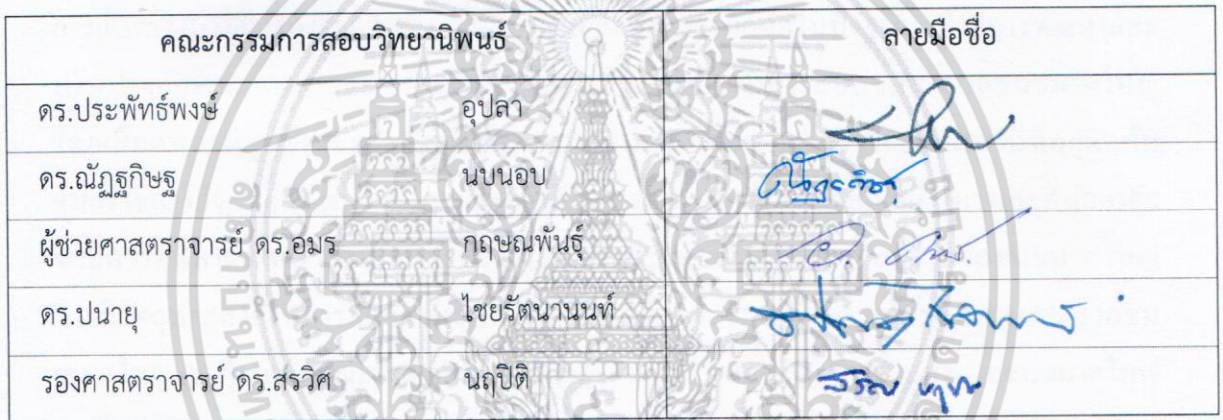 คณะกรรมการสอบวิทยานิพนธ์ ลายมือชื่อ
ดร.ประพัทธ์พงษ์ อุปลา
ดร.ณัฏฐกิษฐ นบนอบ
ผู้ช่วยศาสตราจารย์ ดร.อมร กฤษณพันธุ์
ดร.ปนายุ ไชยรัตนานนท์
รองศาสตราจารย์ ดร.สรวิศ นฤปิติ